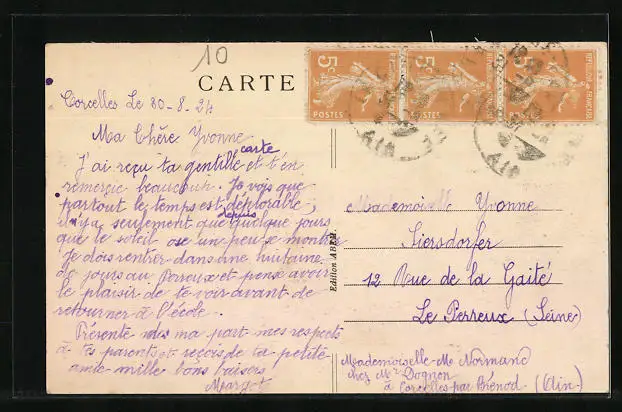 10
CARTE
5c 5c 5c
POSTES POSTES POSTES
AIN AIN
Corcelles Le 30-8-24
Ma Chère Yvonne
J'ai reçu ta gentille carte et t'en
remercie beaucoup. Je vois que
partout le temps est déplorable;
il n'y a seulement que depuis quelque jours
que le soleil ose un peu se montrer
Je dois rentrer dans une huitaine
de jours au Perreux et pense avoir
le plaisir de te voir avant de
retourner à l'école.
Présente de ma part mes respects
à tes parents et reçois de ta petite
amie mille bons baisers
Margot
Edition ABEM.
Mademoiselle Yvonne
Siersdorfer
12 Rue de la Gaité
Le Perreux (Seine)
Mademoiselle M. Normand
chez Mr Dognon
à Corcelles par Brénod (Ain)